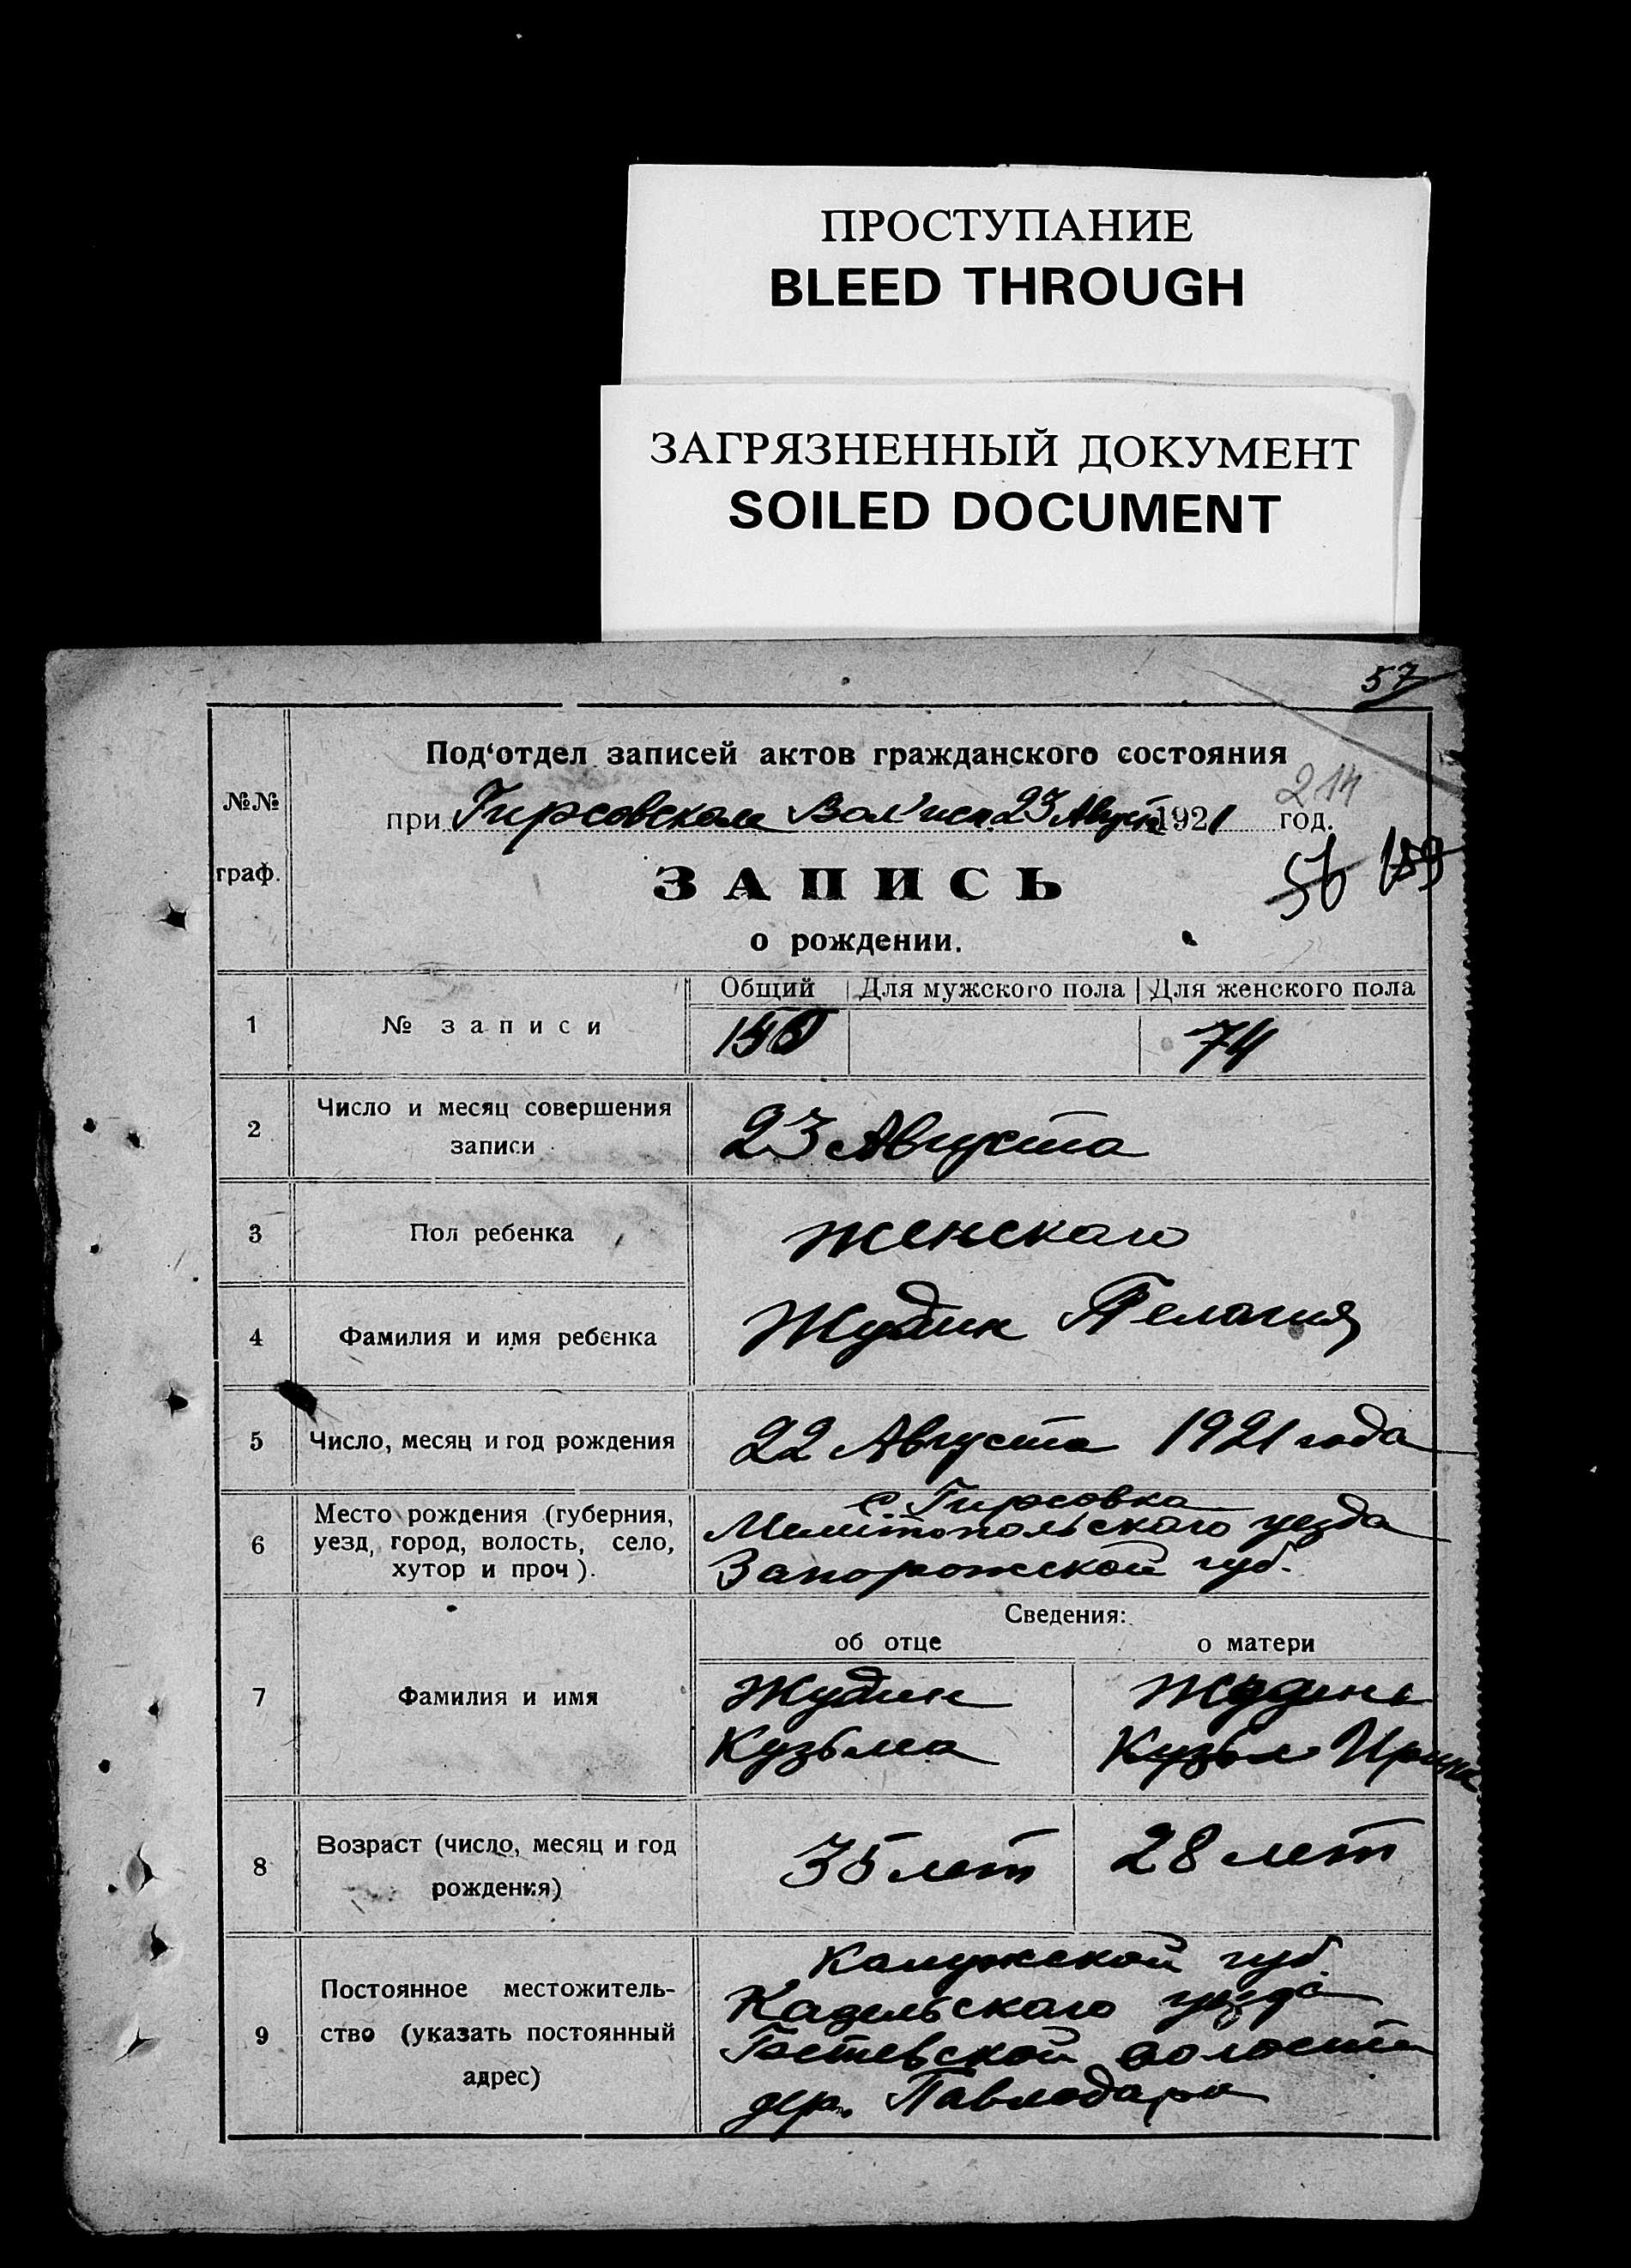 ПРОСТУПАНИЕ
BLEED THROUGH
ЗАГРЯЗНЕННЫЙ ДОКУМЕНТ
SOILED DOCUMENT
57
Под‘отдел записей актов гражданского состояния
214
при Гирсовском Вол'исп. 23 Август 1921 год.
56 159
№№
граф.
ЗАПИСЬ
о рождении.
Общий Для мужского пола Для женского пола
1 № записи 150 74
2 Число и месяц совершения
записи
23 Августа
3 Пол ребенка женскаго
4 Фамилия и имя ребенка Жудин Пелагия
5 Число, месяц и год рождения 22 Августа 1921 года
6 Место рождения (губерния,
уезд, город, волость, село,
хутор и проч).
с Гирсовка
Мелитопольского уезда
Запорожской губ.
Сведения:
об отце о матери
7 Фамилия и имя
Жудин
Кузьма
Кузьм Ирина
8 Возраст (число, месяц и год
рождения)
35 лет 28 лет
9 Постоянное местожитель-
ство (указать постоянный
адрес)
Калужской губ.
уезда
волости
дер. Павлодара